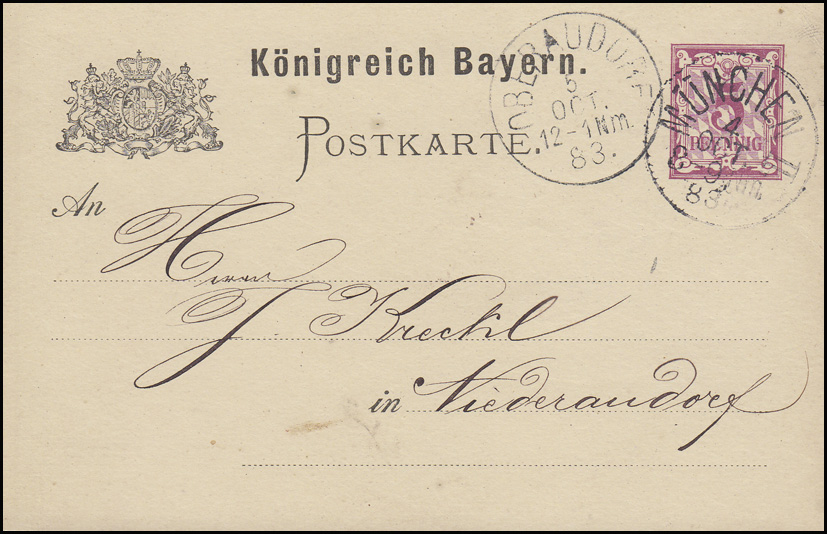 Königreich Bayern.
POSTKARTE.
OBERAUDORF
5
OCT.
12-1 Nm.
83.
MÜNCHEN
4
OCT.
83
PFENNIG
An
Herrn
J Kreckl
in Niederaudorf